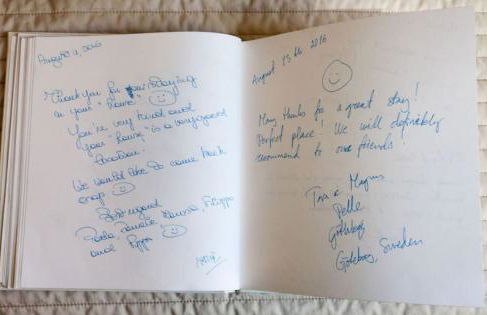 August 4, 2016
Thank you for staying
in your "house"
You're very kind and
your "house" is a very good
location!
We would like to come back
Best regard
and Pippo
August 13 th 2016
Many thanks for a great stay!
Perfect place! We will definitely
recommend to our friends!
Magnus
Pelle
Göteborg, Sweden